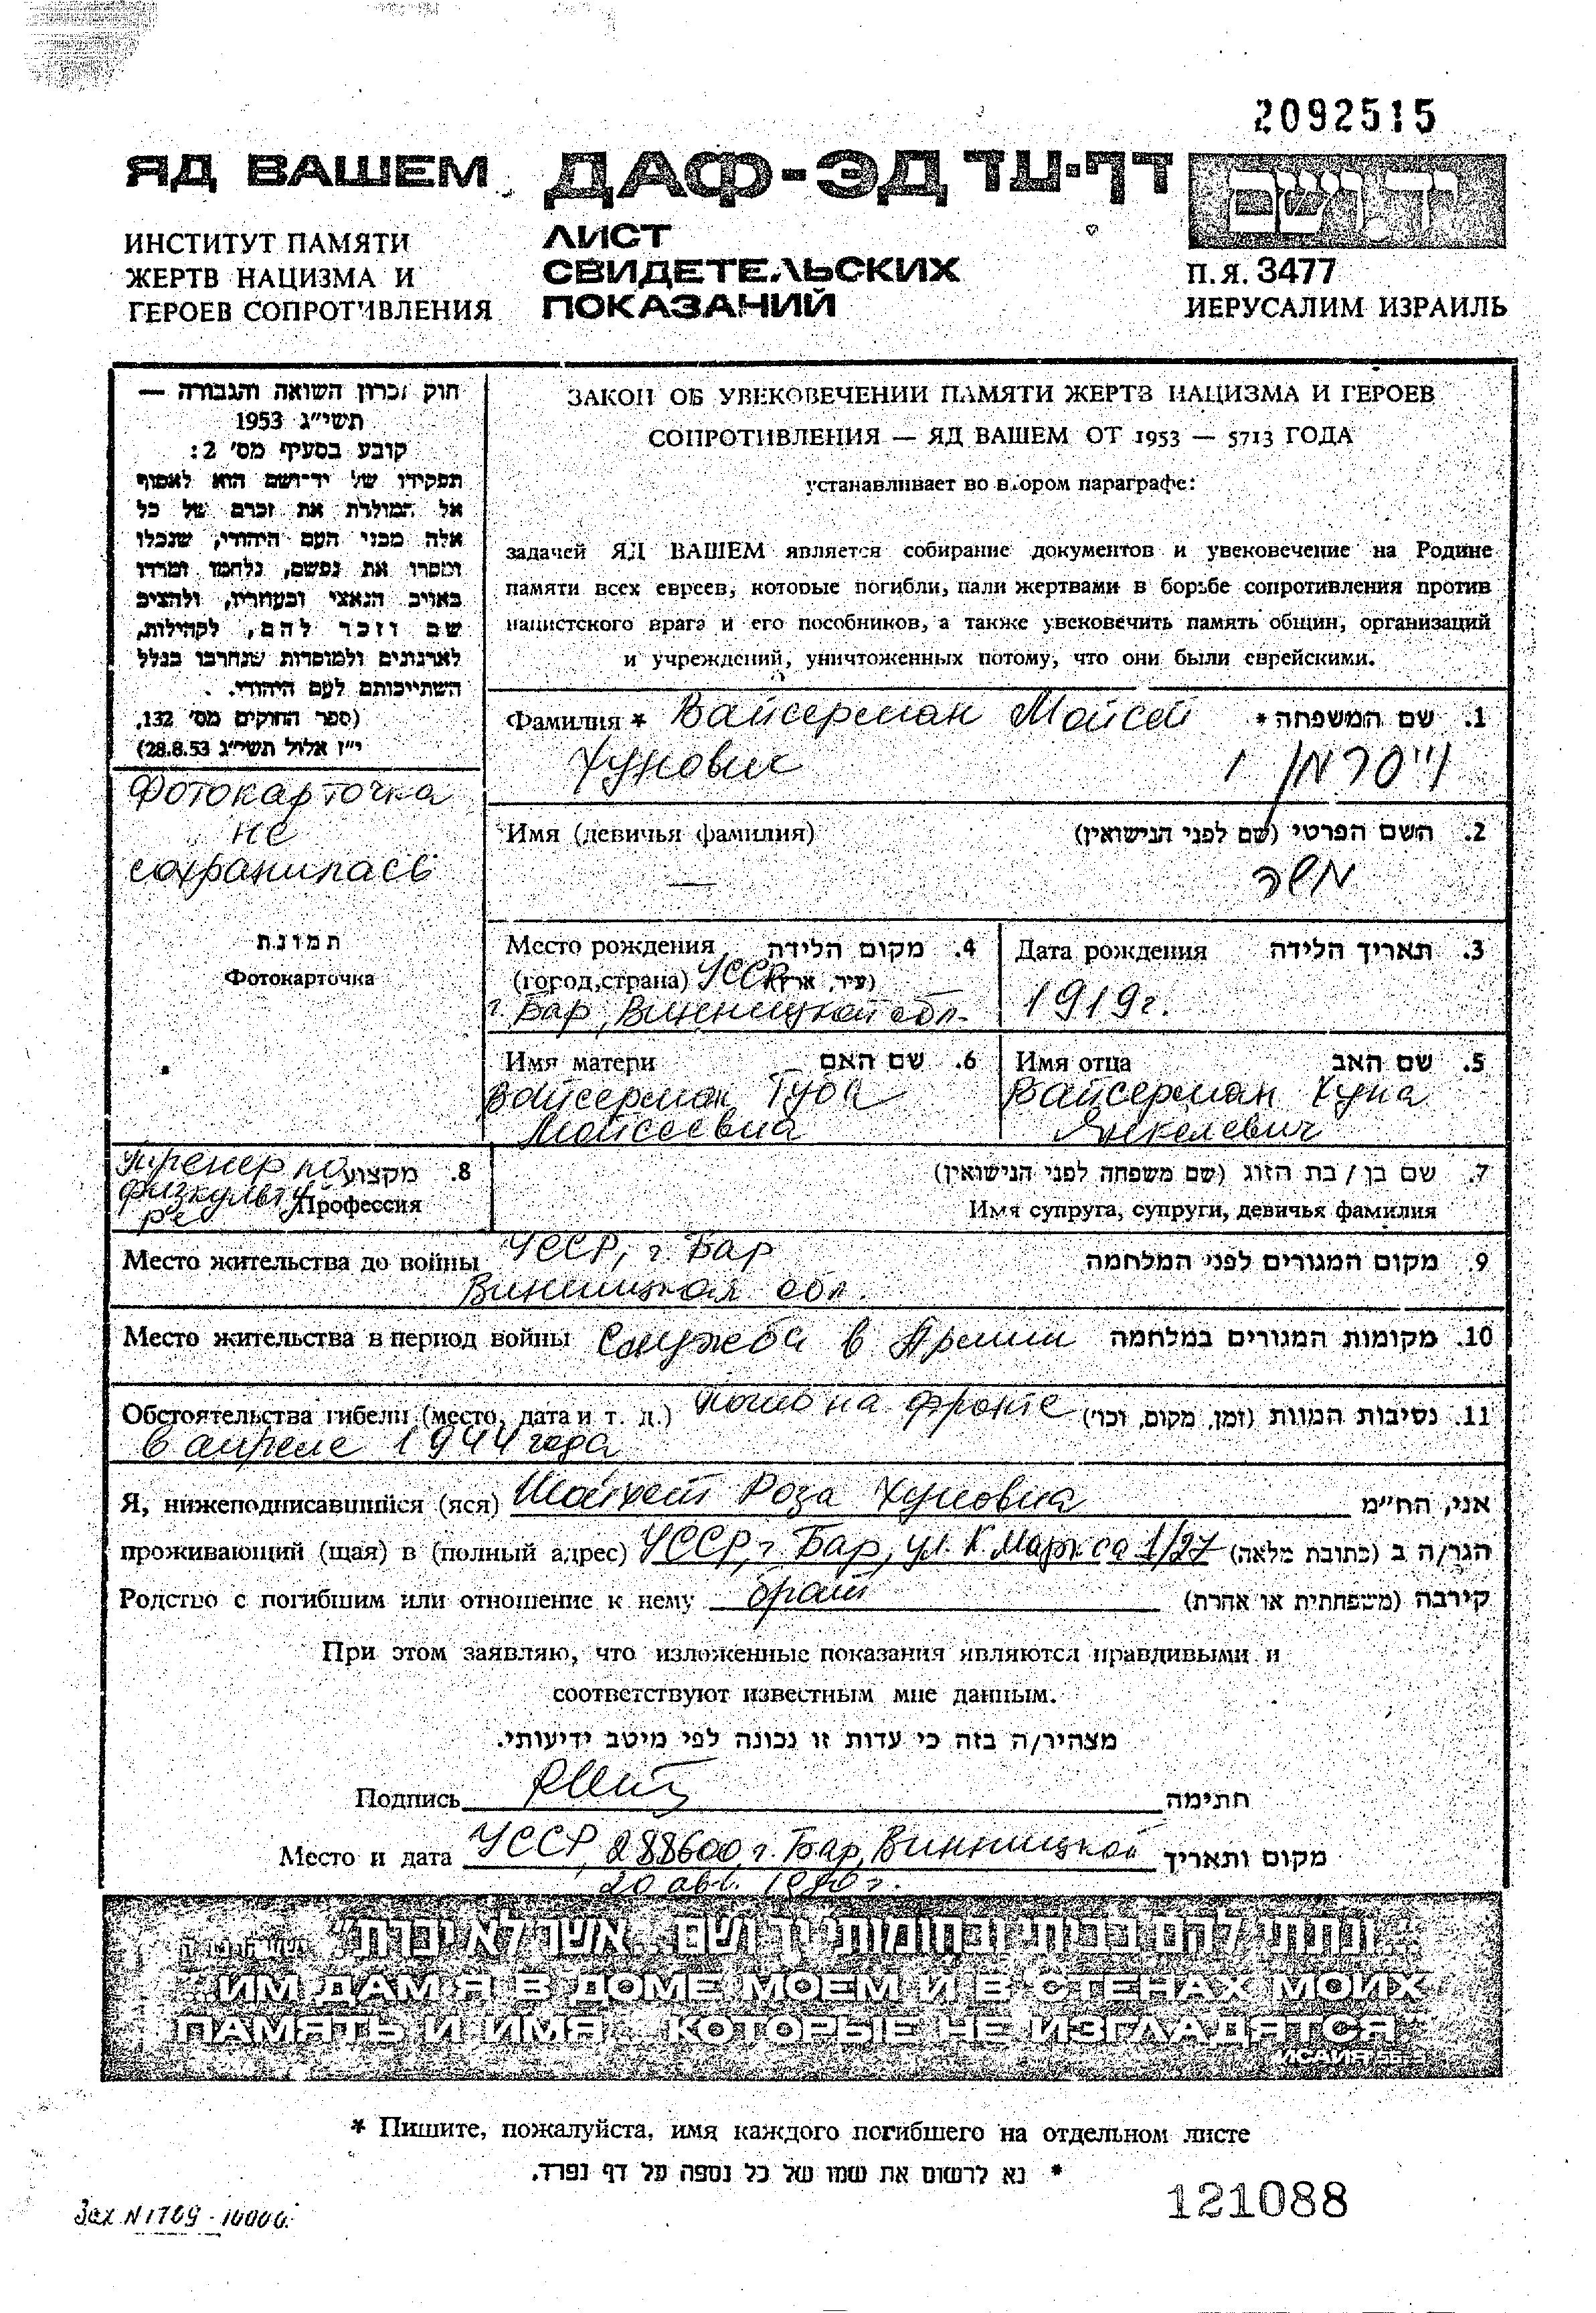 2092515
ЯД ВАШЕМ
ДАФ-ЭД דף-עד
יד ושם
ИНСТИТУТ ПАМЯТИ
ЖЕРТВ НАЦИЗМА И
ГЕРОЕВ СОПРОТИВЛЕНИЯ
ЛИСТ
СВИДЕТЕЛЬСКИХ
ПОКАЗАНИЙ
П.Я. 3477
ИЕРУСАЛИМ ИЗРАИЛЬ
חוק זכרון השואה והגבורה —
תשי״ג 1953
קובע בסעיף מס׳ 2:
תפקידו של יד־ושם הוא לאסוף
אל המולדת את זכרם של כל
אלה מבני העם היהודי, שנפלו
ומסרו את נפשם, נלחמו ומרדו
באויב הנאצי ובעוזריו, ולהציב
שם וזכר להם, לקהילות,
לארגונים ולמוסדות שנחרבו בגלל
השתייכותם לעם היהודי.
(ספר החוקים מס׳ 132,
י״ז אלול תשי״ג 28.8.53)
ЗАКОН ОБ УВЕКОВЕЧЕНИИ ПАМЯТИ ЖЕРТВ НАЦИЗМА И ГЕРОЕВ
СОПРОТИВЛЕНИЯ — ЯД ВАШЕМ ОТ 1953 — 5713 ГОДА
устанавливает во втором параграфе:
задачей ЯД ВАШЕМ является собирание документов и увековечение на Родине
памяти всех евреев, которые погибли, пали жертвами в борьбе сопротивления против
нацистского врага и его пособников, а также увековечить память общин, организаций
и учреждений, уничтоженных потому, что они были еврейскими.
Фамилия * Вайсерман Мойсей 1. שם המשפחה *
Хунович ויסרמן
Имя (девичья фамилия) 2. השם הפרטי (שם לפני הנישואין)
— משה
Фотокарточка
не
сохранилась
תמונת
Фотокарточка
Место рождения 4. מקום הלידה
(город, страна) УССР (עיר, ארץ)
г. Бар, Винницкой обл.
Дата рождения 3. תאריך הלידה
1919г.
Имя матери 6. שם האם
Вайсерман Туба
Мойсеевна
Имя отца 5. שם האב
Вайсерман Хуна
Янкелевич
Тренер по 8. מקצוע
физкульту Профессия
ре
7. שם בן / בת הזוג (שם משפחה לפני הנישואין)
Имя супруга, супруги, девичья фамилия
Место жительства до войны УССР, г. Бар 9. מקום המגורים לפני המלחמה
Винницкая обл.
Место жительства в период войны Служба в Армии 10. מקומות המגורים במלחמה
Обстоятельства гибели (место, дата и т. д.) погиб на фронте 11. נסיבות המוות (זמן, מקום, וכו׳)
в апреле 1944 года
Я, нижеподписавшийся (яся) Шайхет Роза Хуновна אני, הח״מ
проживающий (щая) в (полный адрес) УССР, г. Бар, ул. К. Маркса 1/27 הגר/ה ב (כתובת מלאה)
Родство с погибшим или отношение к нему брат קירבה (משפחתית או אחרת)
При этом заявляю, что изложенные показания являются правдивыми и
соответствуют известным мне данным.
מצהיר/ה בזה כי עדות זו נכונה לפי מיטב ידיעותי.
Подпись חתימה
Место и дата УССР, 288600, г. Бар, Винницкой מקום ותאריך
20 авг. 1990 г.
״...ונתתי להם בביתי ובחומותי יד ושם... אשר לא יכרת״ ישעיהו נו ה
"ИМ ДАМ Я В ДОМЕ МОЕМ И В СТЕНАХ МОИХ
ПАМЯТЬ И ИМЯ... КОТОРЫЕ НЕ ИЗГЛАДЯТСЯ"
ИСАИЯ 56: 5
* Пишите, пожалуйста, имя каждого погибшего на отдельном листе
* נא לרשום את שמו של כל נספה על דף נפרד.
121088
Зак. N 1709 - 10000